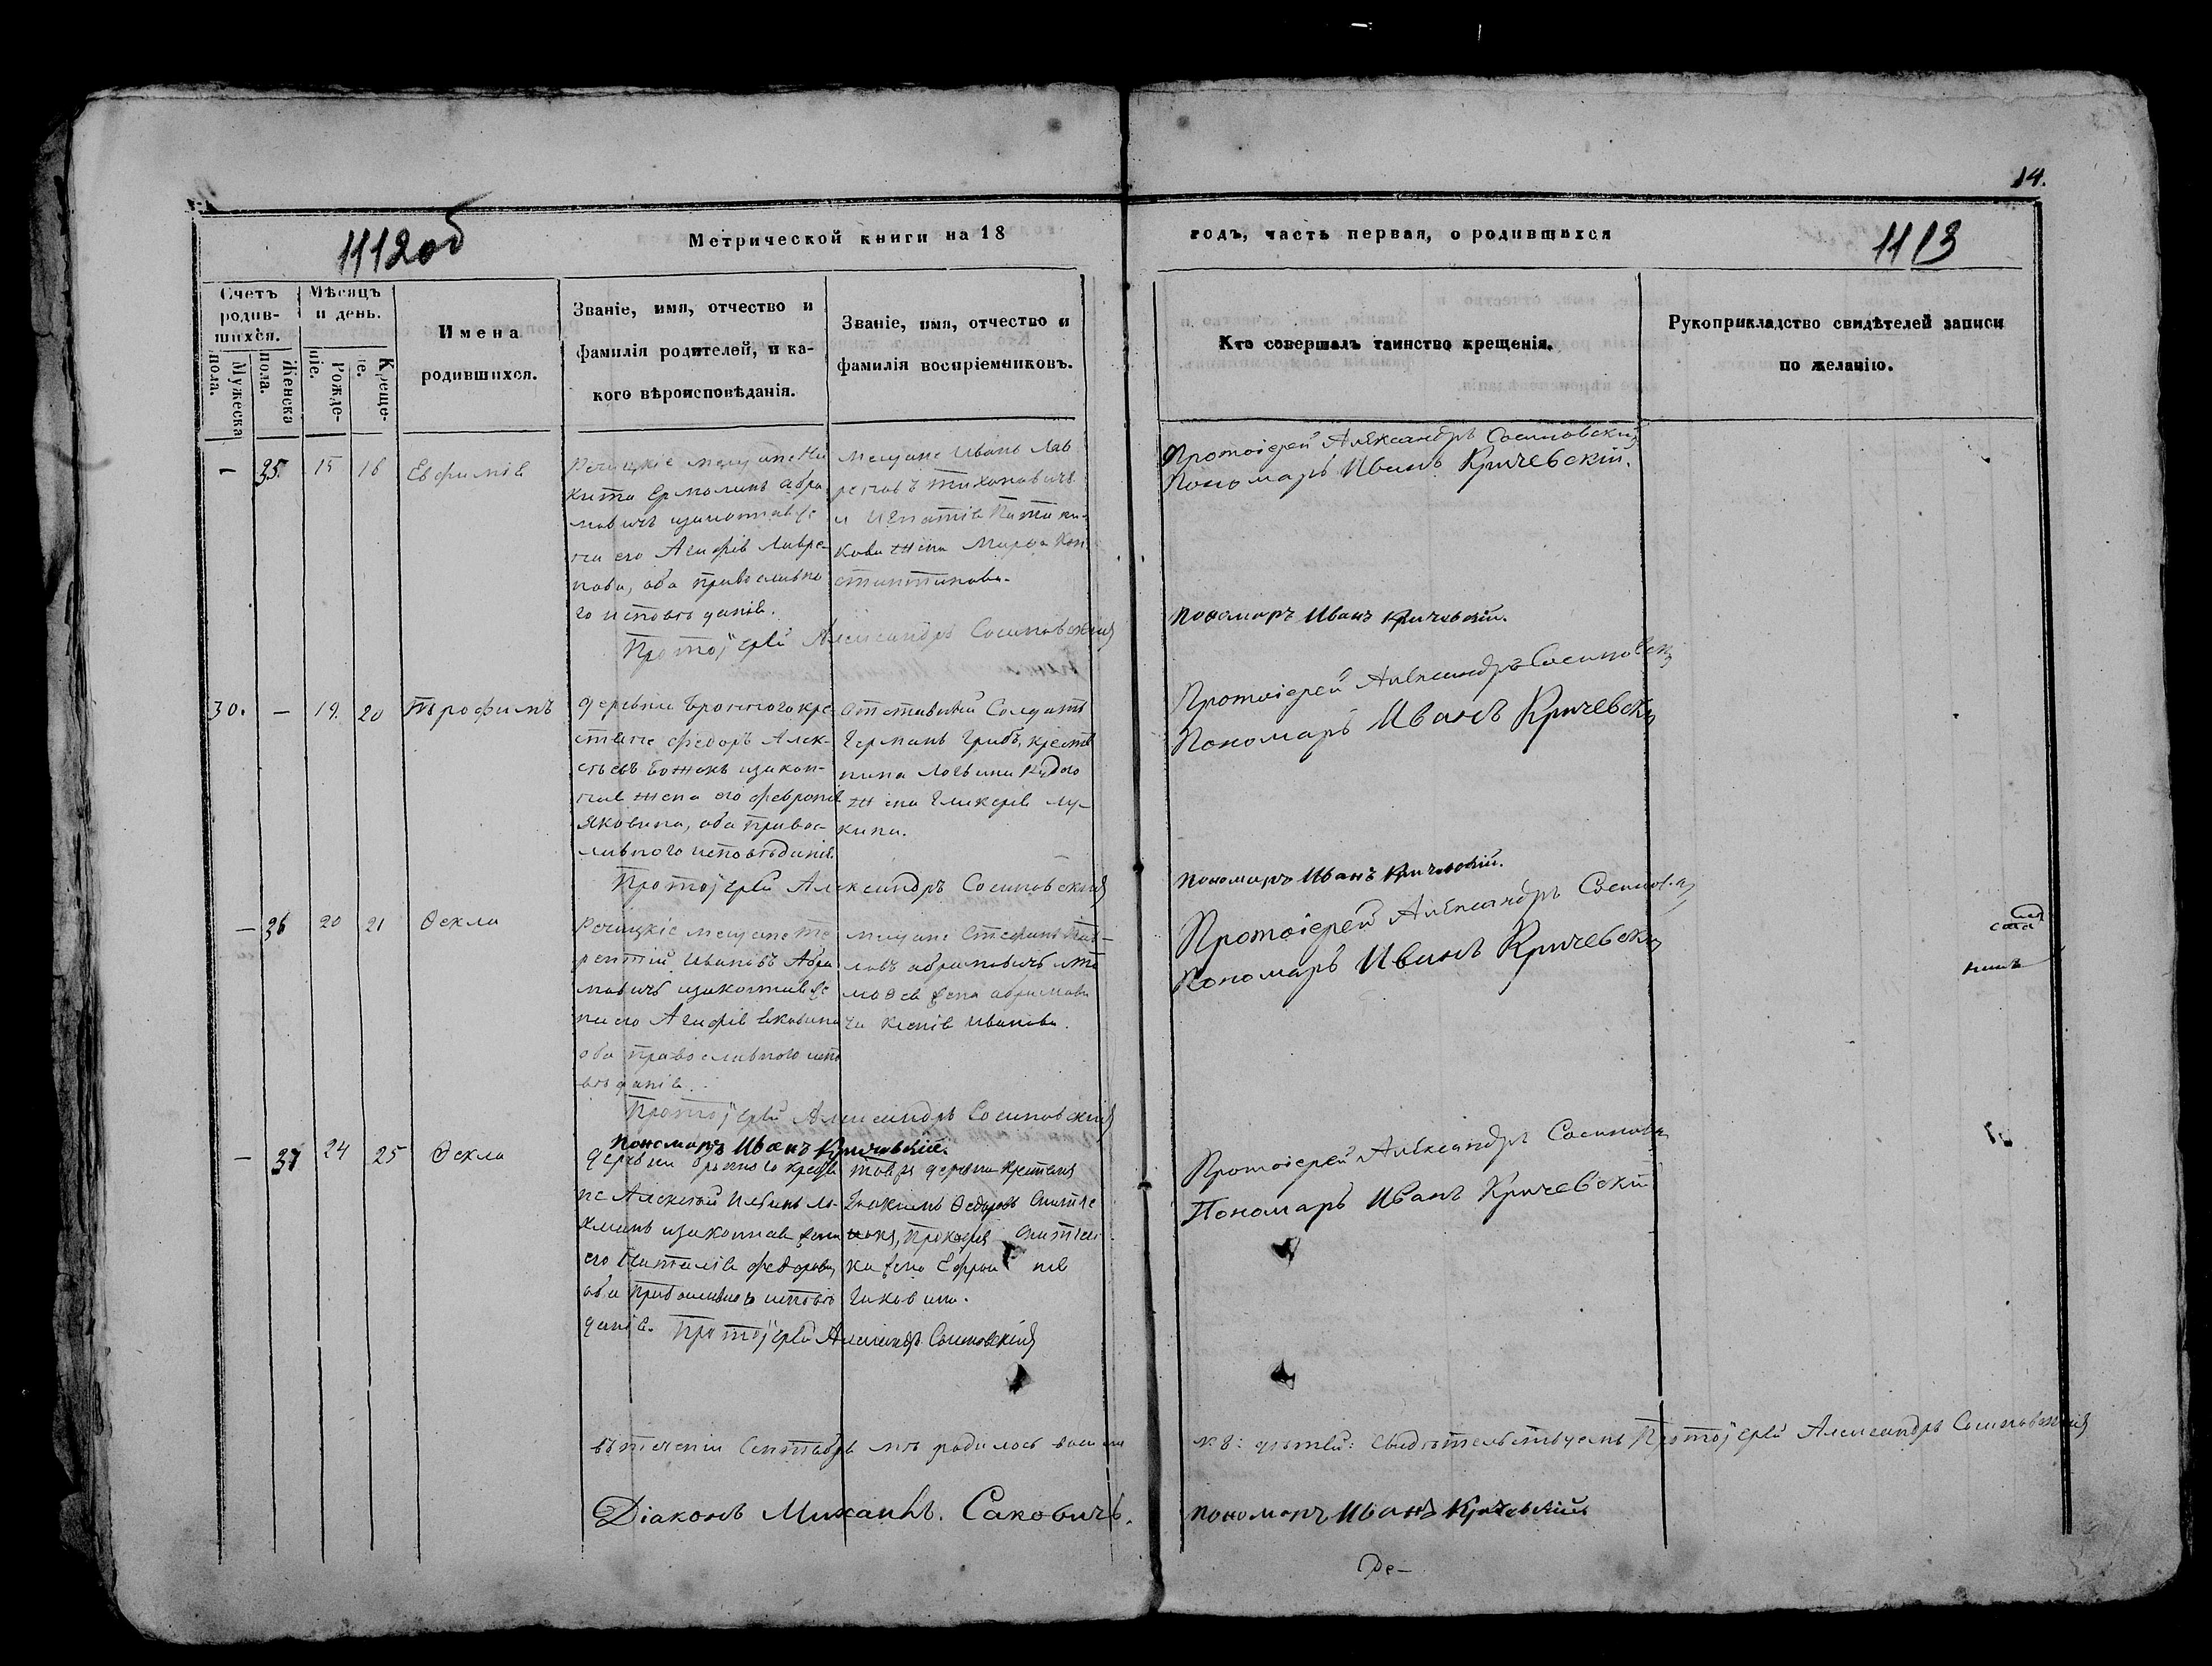 14.
1112об
Метрической книги на 18
годъ, часть первая, о родившихся
1113
Счетъ родив-шихся.
Мѣсяцъ и день.
Имена родившихся.
Званіе, имя, отчество и
фамилія родителей, и ка-
кого вѣроисповѣданія.
Званіе, имя, отчество и
фамилія воспріемниковъ.
Кто совершалъ таинство крещенія.
Рукоприкладство свидѣтелей записи
по желанію.
Мужеска пола.
Женска пола.
Рожде-ніе.
Креще-ніе.
— 35. 15 16 Евфимія
Речицкіе мещане Ни
кита Ермолинъ Абра
мовичъ изаконная же
на его Агафія Лавре-
нова, оба православна
го исповѣданія.
Протоіерей Александръ Сосиновскій
Мещане Иванъ Лав
реновъ Тихоновичъ
и Игнатія
жена Марфа Кон
стантинова.
Протоіерей Александръ Сосиновскій
Пономарь Иванъ Кричевскій.
Пономаръ Иванъ Кричевскій.
30. — 19. 20 Трофимъ
Деревни Бронного кре
стяне Федоръ Алек-
сѣевъ Божокъ изакон-
ная жена его Февронія
Яковина, оба правос-
лавного исповѣданія.
Протоіерей Александръ Сосиновскій
Отставный Солдатъ
Германъ Грибъ, крестя
нина Логвина
жена Гликерія Лу-
кина.
Протоіерей Александръ Сосиновскі
Пономарь Иванъ Кричевскі
Пономаръ Иванъ Кричевскій.
— 36 20 21 Ѳекла
Речицкіе мещане Те
рентій Ивановъ Абра
мовичъ изаконная же
на его Агафія Яковина
оба православного испо
вѣданія.
Протоіерей Александръ Сосиновскій
Пономаръ Иванъ Кричевскій.
Мещане Стефанъ Пав-
ловъ Абрамовичъ
жена Абрамови
ча Ксенія Иванова.
Протоіерей Александръ Сосиновскі
Пономарь Иванъ Кричевскі
— 37 24 25 Ѳекла
Деревни Бронного крестя
не Алексѣй Ильинъ Ло-
хманъ изаконная жена
его Наталія Федорова,
оба православного исповѣ
данія. Протоіерей Александръ Сосиновскій
тойже деревни крестяня
Іоакимъ Ѳедоровъ
Прокофія
жена
Яковина.
Протоіерей Александръ Сосиновскі
Пономаръ Иванъ Кричевскій
въ теченіи Сентября м-цѣ родилось восемь
Протоіерей Александръ Сосиновскій
№ 8: дѣтей: Свидѣтельствуемъ
Діаконъ Михаилъ Саковичъ.
Пономаръ Иванъ Кричевскій
Де-